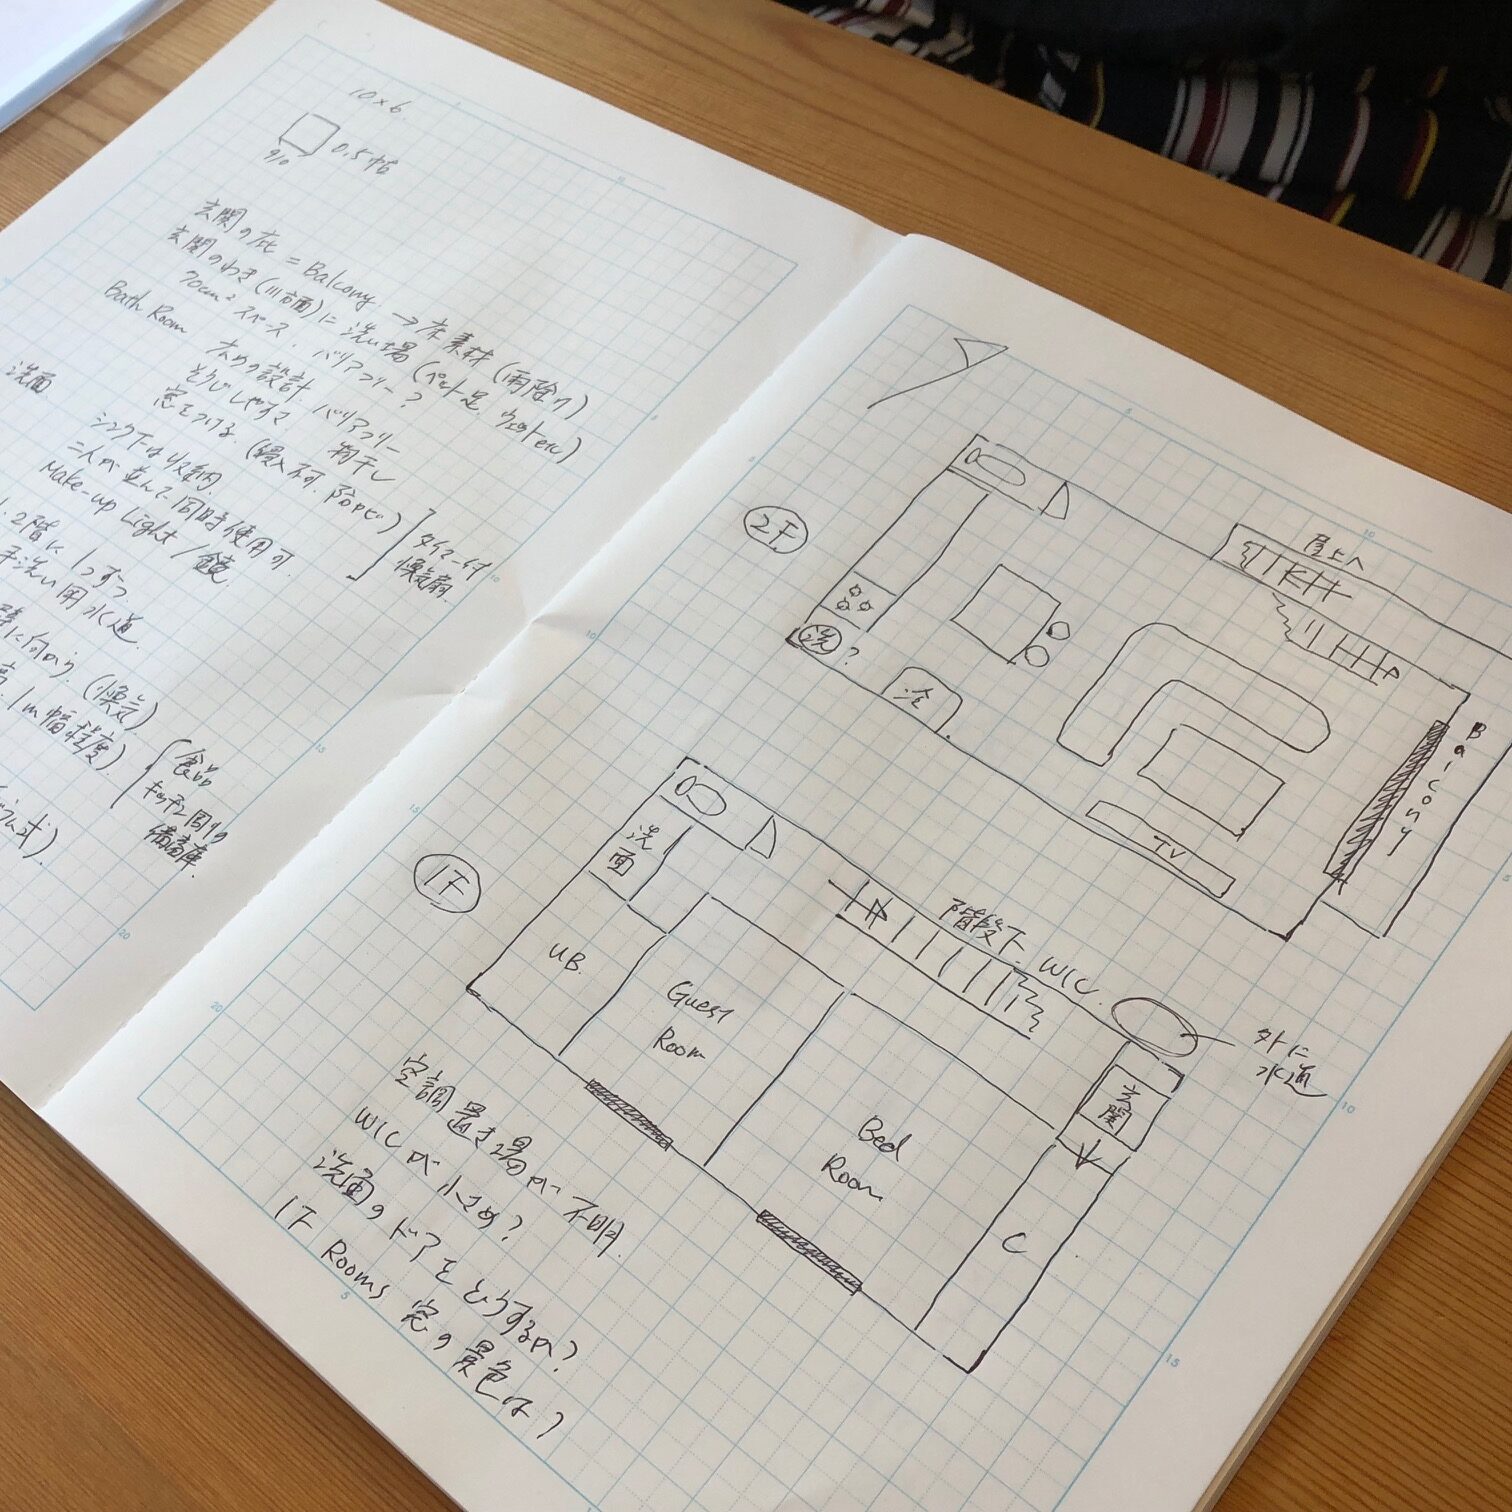 10×6
910
0.5帖
玄関の庇 = Balcony → 床素材 (雨除け)
玄関のわき (川面)に 洗い場 (ペット足, ウェットetc)
70cm² スペース. バリアフリー?
Bath Room 広めの設計, バリアフリー
そうじしやすさ 物干し
窓をつける. (侵入不可, 防カビ)
洗面
シンク下は収納.
二人が並んで同時使用可.
Make-up Light / 鏡
タイマー付
換気扇
1, 2階に 1つずつ
手洗い用水道
壁に向かう. (換気)
1m幅程度)
食品
キッチン周りの
備蓄庫
2F
屋上へ
洗?
冷
TV
Balcony
1F
洗面
UB.
Guest
Room
階段下 WIC.
Bed
Room
玄関
C
外に
水道
空調置き場が不明.
WICが小さめ?
洗面のドアをどうするか?
1F Rooms 窓の景色は?